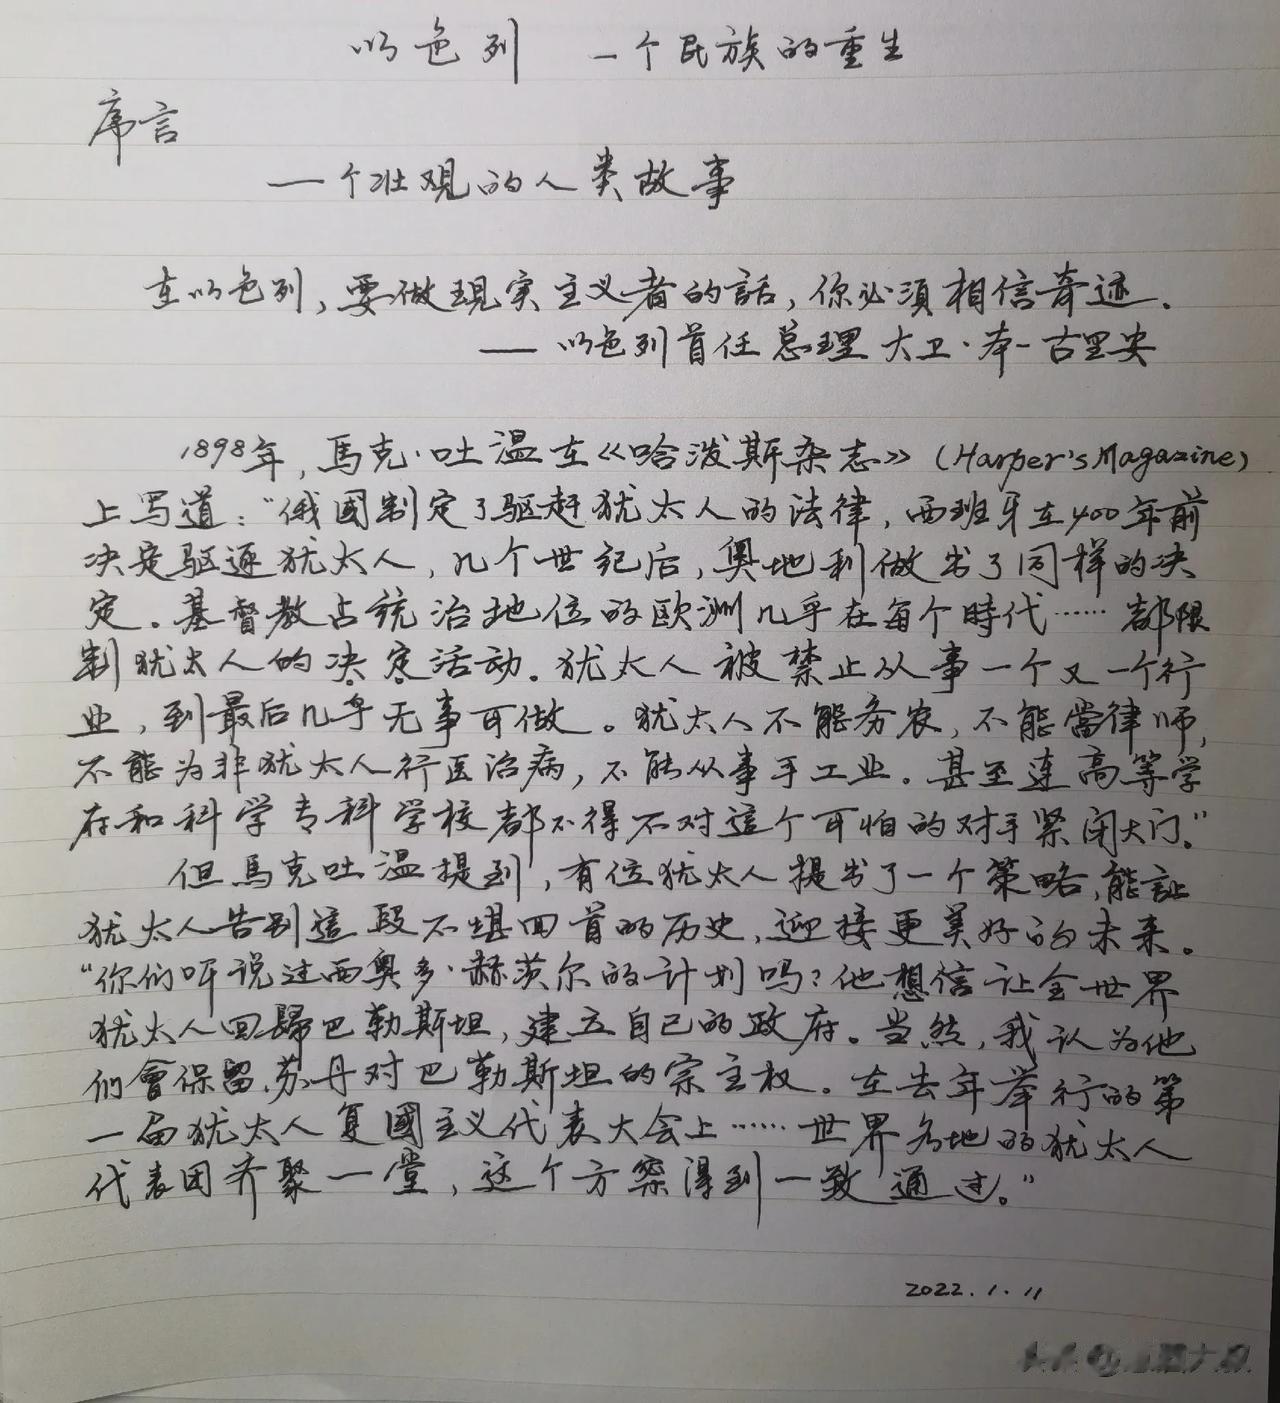 以色列 一个民族的重生
序言
一个壮观的人类故事
在以色列,要做现实主义者的話,你必须相信奇迹.
—— 以色列首任总理 大卫·本-古里安
1898年,馬克·吐温在《哈泼斯杂志》(Harper's Magazine)
上写道:“俄國制定了驱赶犹太人的法律,西班牙在400年前
决定驱逐犹太人,几个世纪后,奥地利做出了同样的决
定。基督教占统治地位的欧洲几乎在每个時代……都限
制犹太人的决定活动.犹太人被禁止从事一个又一个行
业,到最后几乎无事可做。犹太人不能务农,不能當律师,
不能为非犹太人行医治病,不能从事手工业。甚至连高等学
府和科学专科学校都不得不对這个可怕的对手紧闭大门.”
但馬克吐温提到,有位犹太人提出了一个策略,能讓
犹太人告别這段不堪回首的历史,迎接更美好的未来。
“你们听说过西奥多·赫茨尔的计划吗?他想信让全世界
犹太人回歸巴勒斯坦,建立自己的政府。当然,我认为他
们會保留苏丹对巴勒斯坦的宗主权。在去年举行的第
一届犹太人复國主义代表大会上……世界各地的犹太人
代表团齐聚一堂,这个方案得到一致通过。”
2022.1.11
头条@